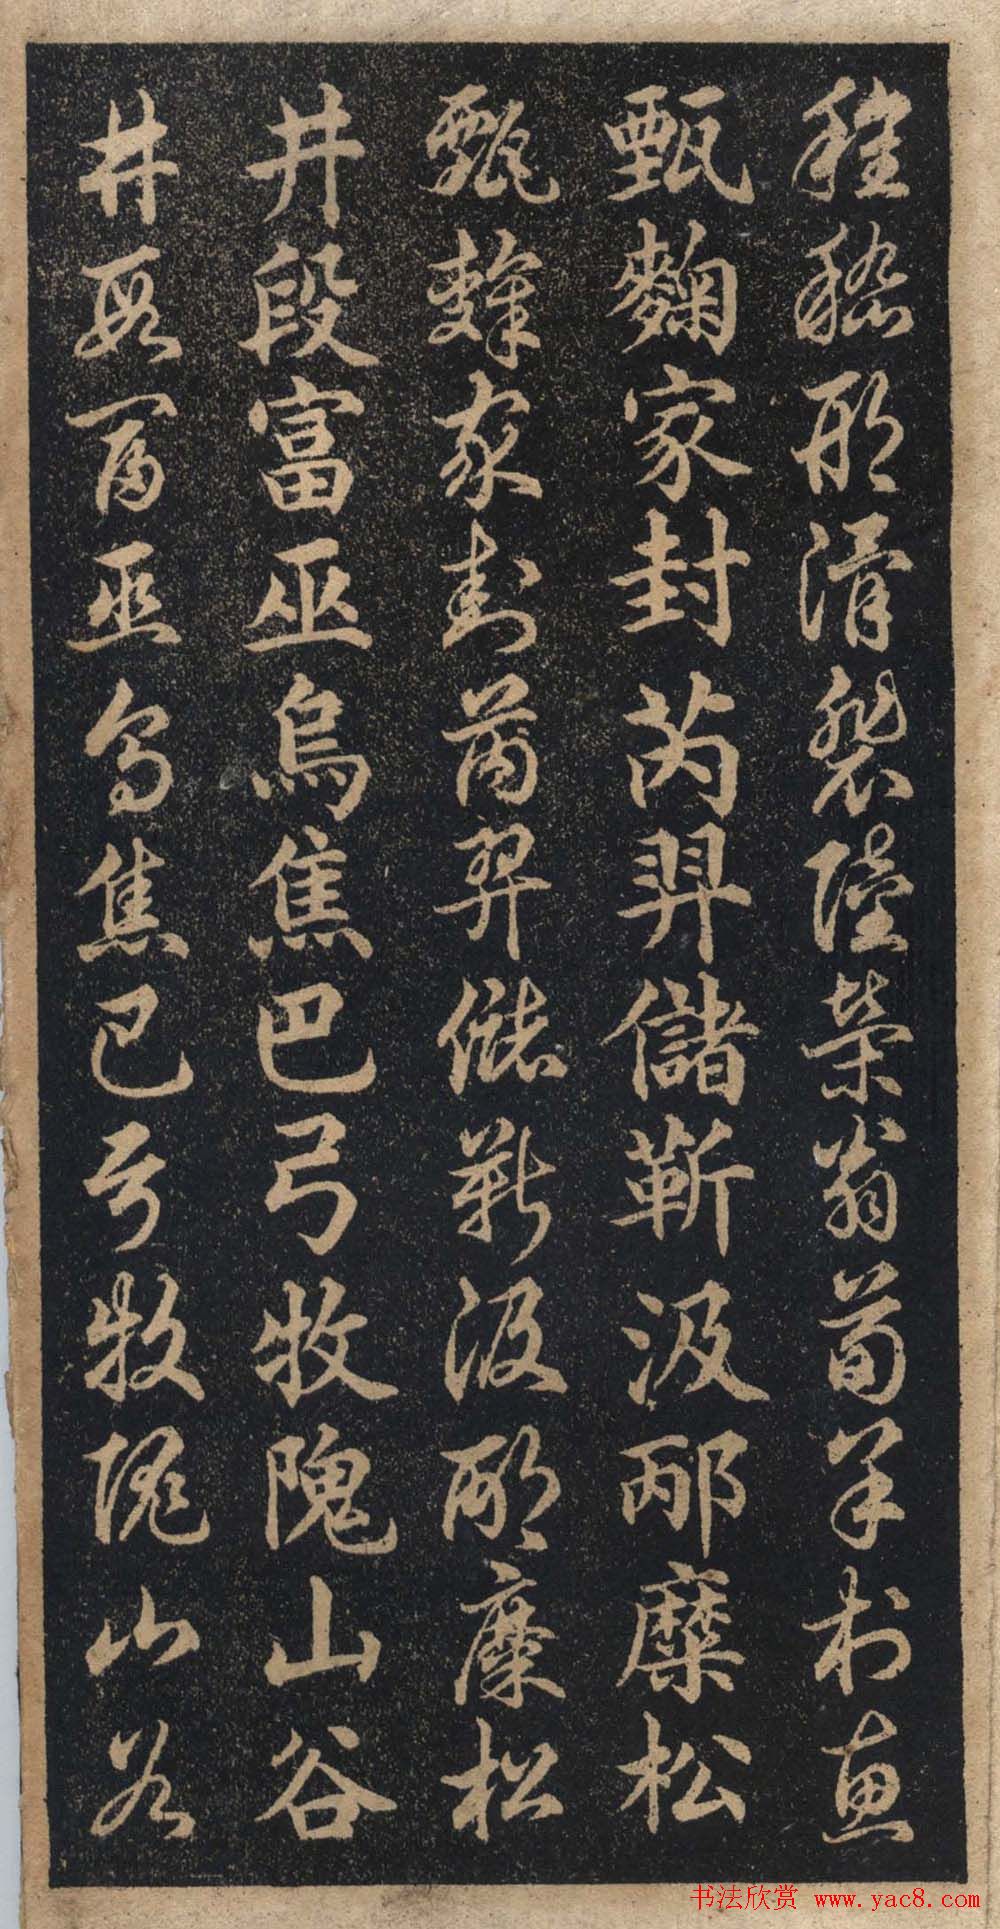 程嵇邢滑裴陸榮翁荀羊於惠
甄麴家封芮羿儲靳汲邴糜松
甄麴家封芮羿儲靳汲邴糜松
井段富巫烏焦巴弓牧隗山谷
井段富巫烏焦巴弓牧隗山谷
书法欣赏 www.yac8.com